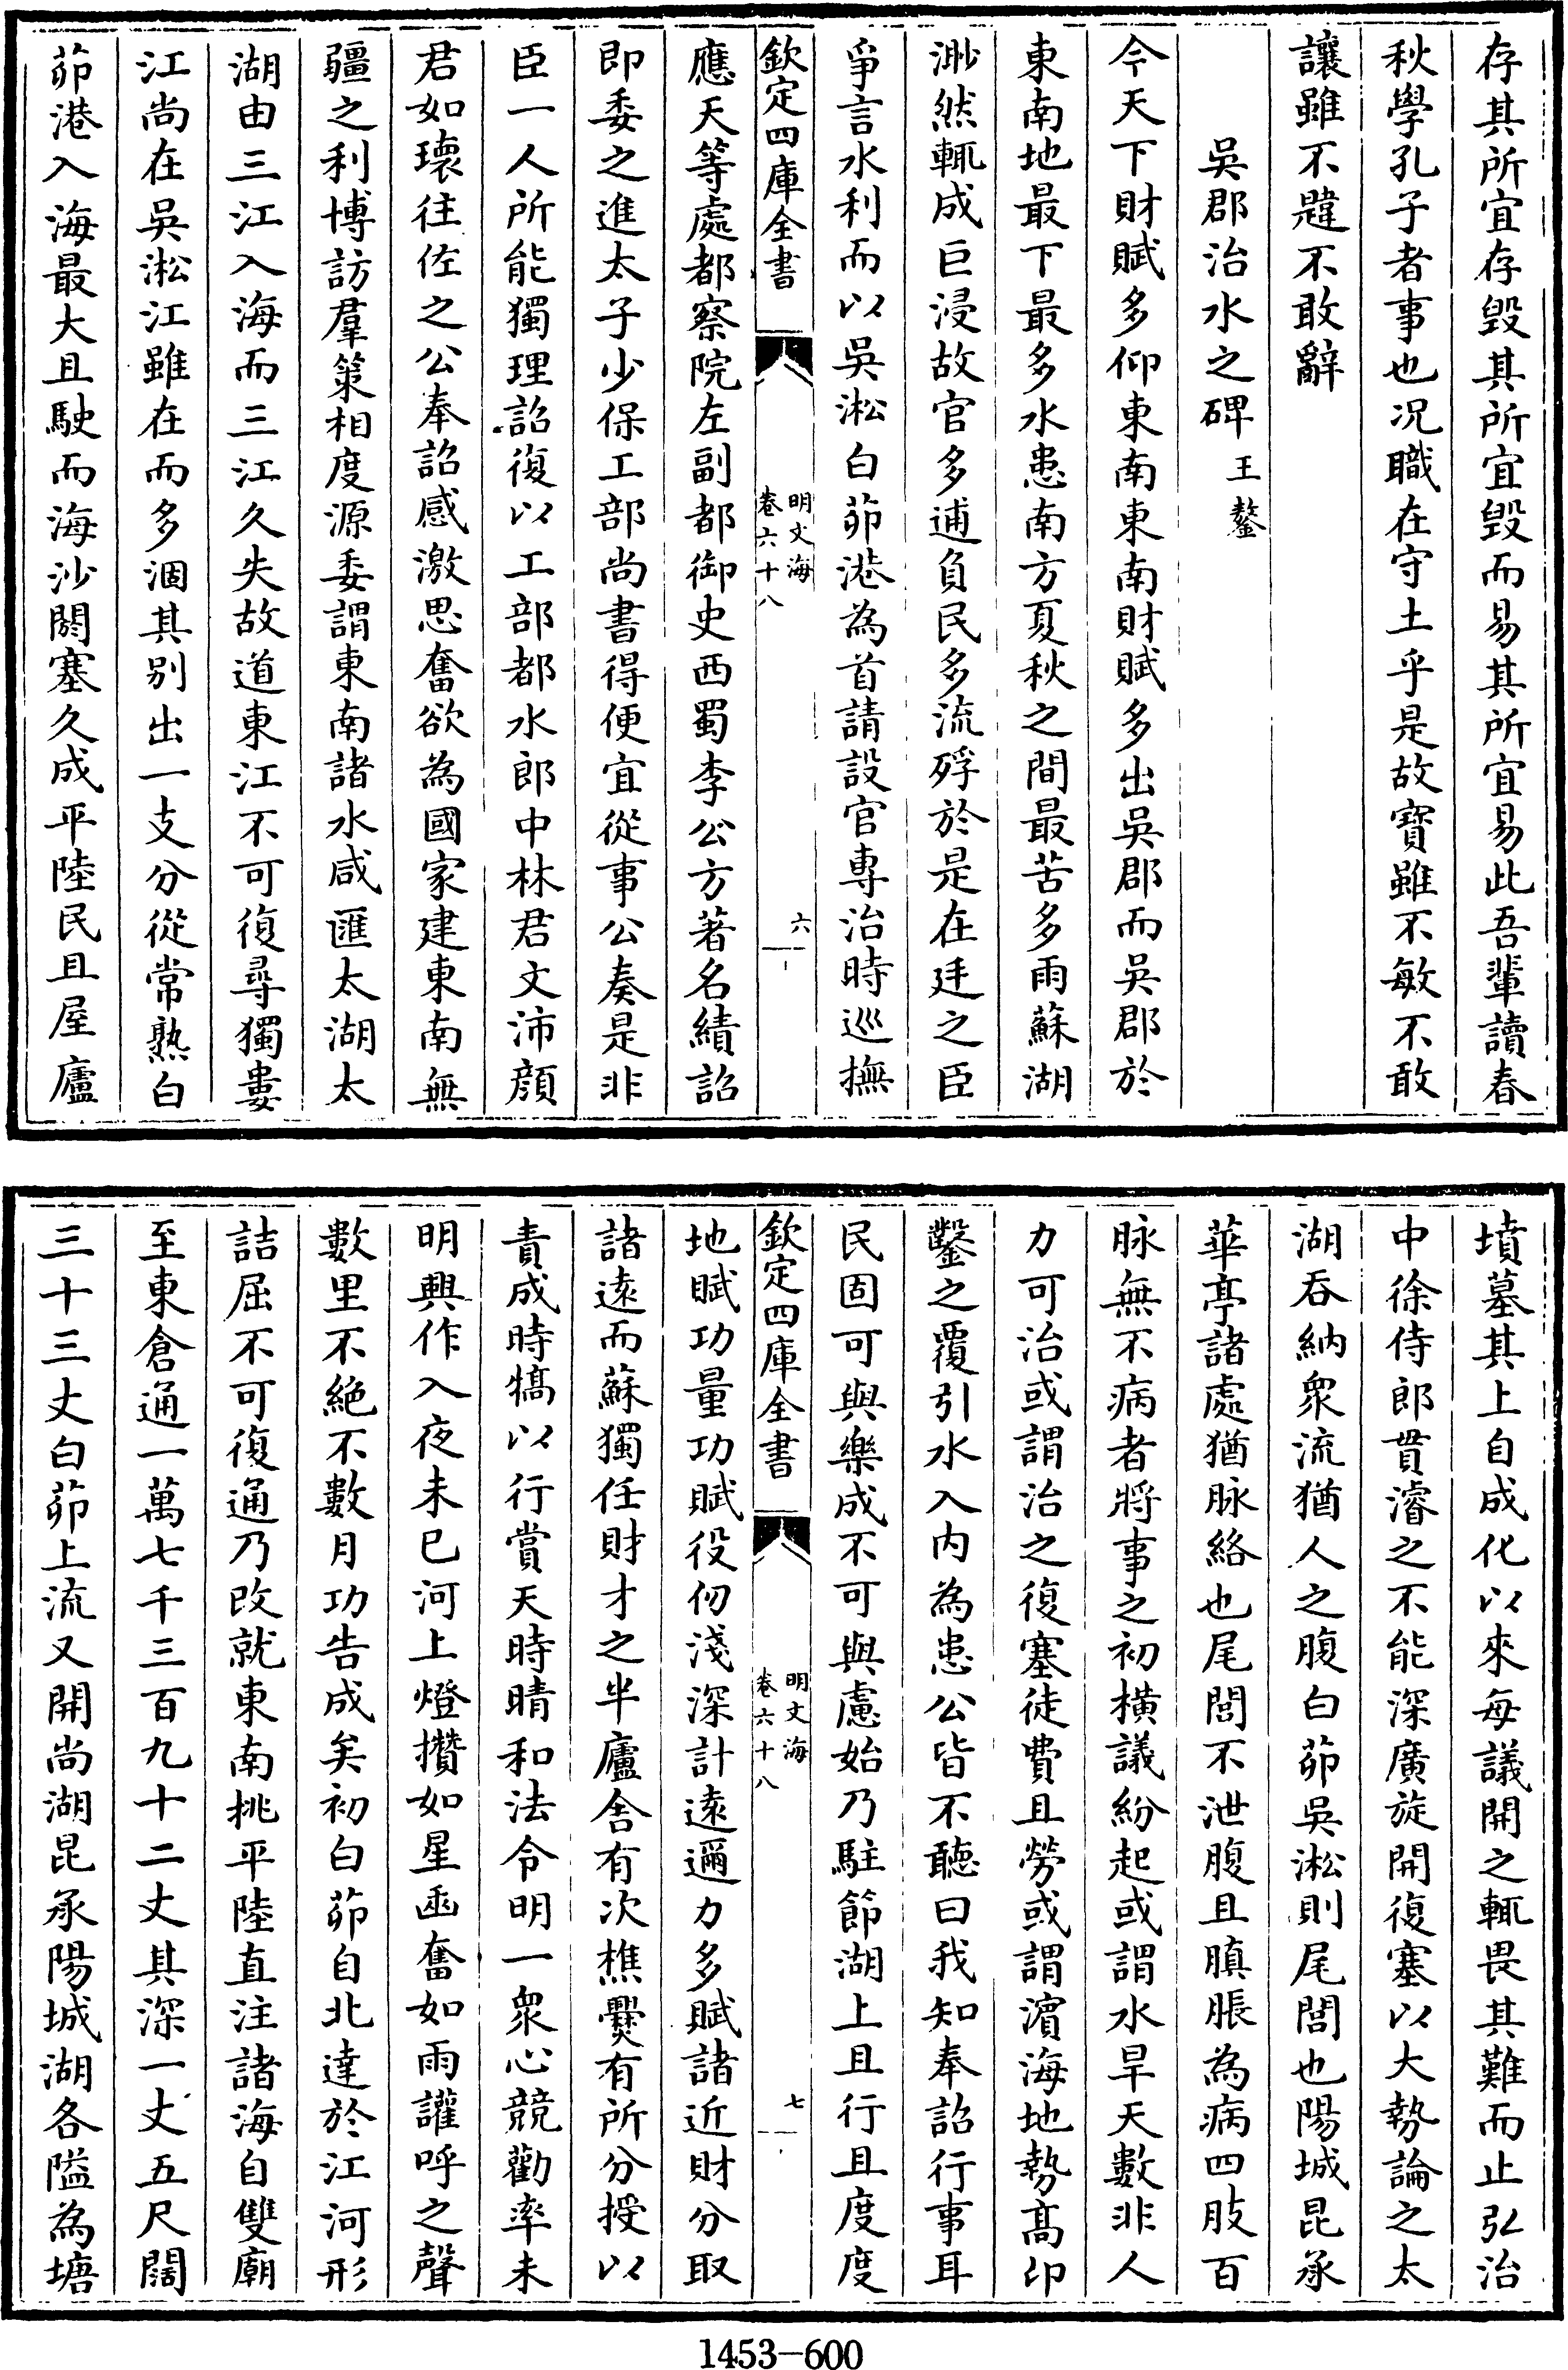 存其所宜存毁其所宜毁而易其所宜易此吾輩讀春
秋學孔子者事也况職在守土乎是故寳雖不敏不敢
讓雖不韙不敢辭
吳郡治水之碑 王鏊
今天下財賦多仰東南東南財賦多出吳郡而吳郡於
東南地最下最多水患南方夏秋之間最苦多雨蘇湖
渺然輒成巨浸故官多逋負民多流殍於是在廷之臣
爭言水利而以吳淞白茆港為首請設官專治時巡撫
欽定四庫全書
明文海
卷六十八
六
應天等處都察院左副都御史西蜀李公方著名績詔
即委之進太子少保工部尚書得便宜從事公奏是非
臣一人所能獨理詔復以工部都水郎中林君文沛顔
君如瓌往佐之公奉詔感激思奮欲為國家建東南無
疆之利博訪羣策相度源委謂東南諸水咸匯太湖太
湖由三江入海而三江久失故道東江不可復尋獨婁
江尚在吳淞江雖在而多涸其别出一支分從常熟白
茆港入海最大且駛而海沙閼塞久成平陸民且屋廬
墳墓其上自成化以來每議開之輒畏其難而止弘治
中徐侍郎貫濬之不能深廣旋開復塞以大勢論之太
湖吞納衆流猶人之腹白茆吳淞則尾閭也陽城昆承
華亭諸處猶脉絡也尾閭不泄腹且䐜脹為病四肢百
脉無不病者將事之初横議紛起或謂水旱天數非人
力可治或謂治之復塞徒費且勞或謂濵海地勢髙卬
鑿之覆引水入内為患公皆不聽曰我知奉詔行事耳
民固可與樂成不可與慮始乃駐節湖上且行且度度
欽定四庫全書
明文海
卷六十八
七
地賦功量功賦役仞淺深計逺邇力多賦諸近財分取
諸逺而蘇獨任財才之半廬舍有次樵爨有所分授以
責成時犒以行賞天時晴和法令明一衆心競勸率未
明興作入夜未已河上燈攢如星臿奮如雨讙呼之聲
數里不絶不數月功告成矣初白茆自北達於江河形
詰屈不可復通乃改就東南挑平陸直注諸海自雙廟
至東倉通一萬七千三百九十二丈其深一丈五尺闊
三十三丈白茆上流又開尚湖昆承陽城湖各隘為塘
1453-600